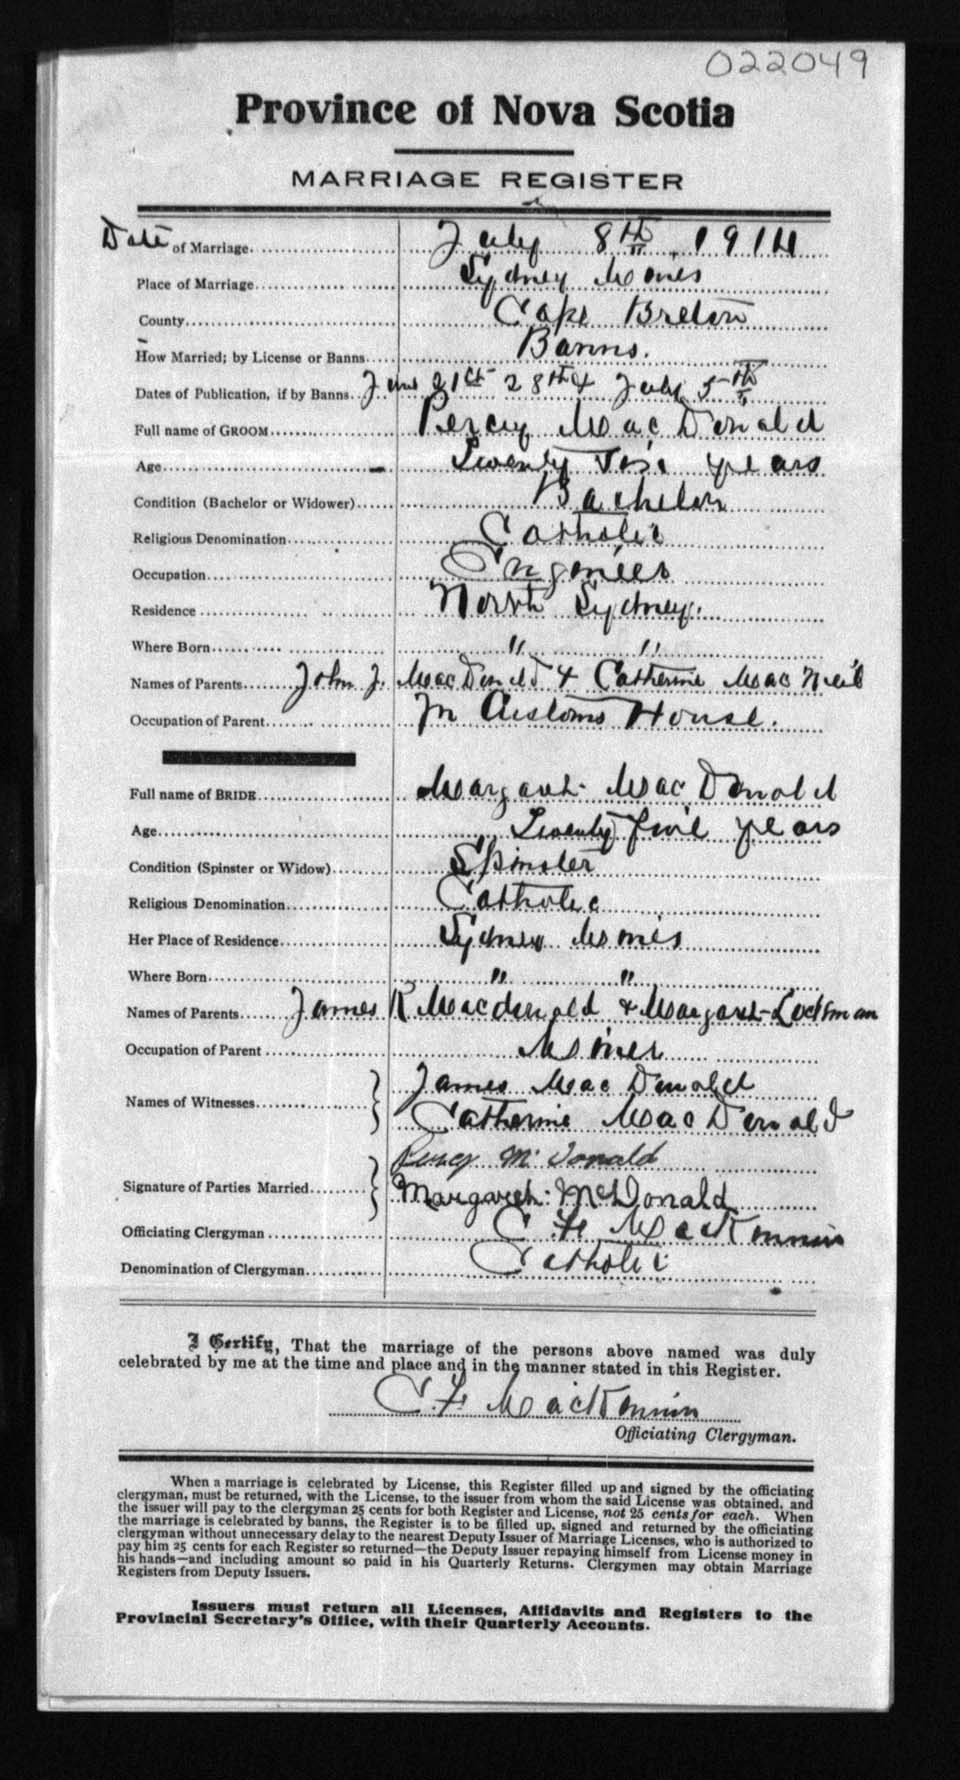 022049
Province of Nova Scotia
MARRIAGE REGISTER
Date of Marriage July 8th 1914
Place of Marriage Sydney Mines
County Cape Breton
How Married; by License or Banns Banns.
Dates of Publication, if by Banns June 21st 28th & July 5th
Full name of GROOM Percy MacDonald
Age Twenty years
Condition (Bachelor or Widower) Bachelor
Religious Denomination Catholic
Occupation Engineer
Residence North Sydney.
Where Born " "
Names of Parents John J. MacDonald & Catherine MacNeil
Occupation of Parent In Customs House.
Full name of BRIDE Margaret MacDonald
Age Twenty five years
Condition (Spinster or Widow) Spinster
Religious Denomination Catholic
Her Place of Residence Sydney Mines
Where Born " "
Names of Parents James R. Macdonald & Margaret Lockman
Occupation of Parent Miner
Names of Witnesses James MacDonald
Catherine MacDonald
Signature of Parties Married Percy McDonald
Margaret McDonald
Officiating Clergyman C. F. MacKinnon
Denomination of Clergyman Catholic
I Certify, That the marriage of the persons above named was duly
celebrated by me at the time and place and in the manner stated in this Register.
C. F. MacKinnon
Officiating Clergyman.
When a marriage is celebrated by License, this Register filled up and signed by the officiating
clergyman, must be returned, with the License, to the issuer from whom the said License was obtained, and
the issuer will pay to the clergyman 25 cents for both Register and License, not 25 cents for each. When
the marriage is celebrated by banns, the Register is to be filled up, signed and returned by the officiating
clergyman without unnecessary delay to the nearest Deputy Issuer of Marriage Licenses, who is authorized to
pay him 25 cents for each Register so returned—the Deputy Issuer repaying himself from License money in
his hands—and including amount so paid in his Quarterly Returns. Clergymen may obtain Marriage
Registers from Deputy Issuers.
Issuers must return all Licenses, Affidavits and Registers to the
Provincial Secretary's Office, with their Quarterly Accounts.